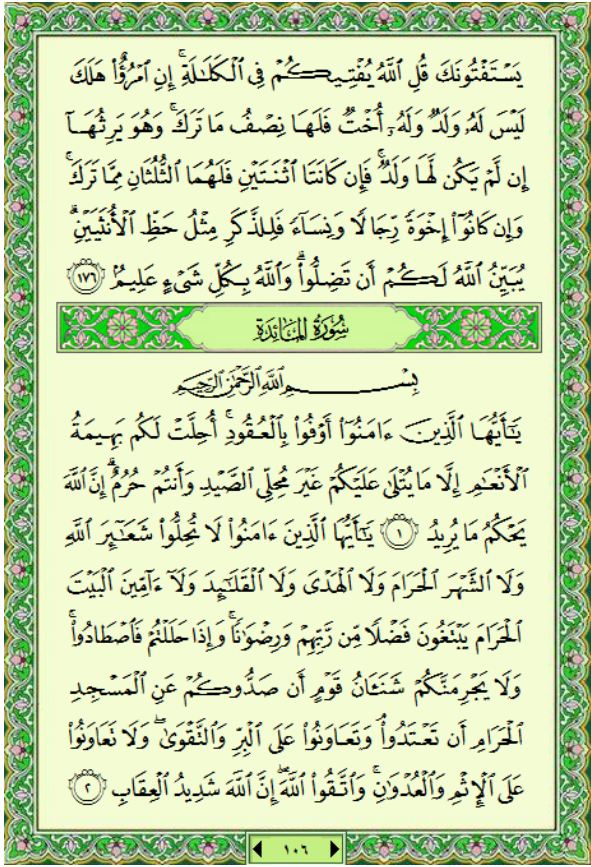 يَسۡتَفۡتُونَكَ قُلِ ٱللَّهُ يُفۡتِيكُمۡ فِي ٱلۡكَلَٰلَةِۚ إِنِ ٱمۡرُؤٌاْ هَلَكَ
لَيۡسَ لَهُۥ وَلَدٞ وَلَهُۥٓ أُخۡتٞ فَلَهَا نِصۡفُ مَا تَرَكَۚ وَهُوَ يَرِثُهَآ
إِن لَّمۡ يَكُن لَّهَا وَلَدٞۚ فَإِن كَانَتَا ٱثۡنَتَيۡنِ فَلَهُمَا ٱلثُّلُثَانِ مِمَّا تَرَكَۚ
وَإِن كَانُوٓاْ إِخۡوَةٗ رِّجَالٗا وَنِسَآءٗ فَلِلذَّكَرِ مِثۡلُ حَظِّ ٱلۡأُنثَيَيۡنِۗ
يُبَيِّنُ ٱللَّهُ لَكُمۡ أَن تَضِلُّواْۗ وَٱللَّهُ بِكُلِّ شَيۡءٍ عَلِيمُۢ ١٧٦
سُورَةُ المَائِدَةِ
بِسۡمِ ٱللَّهِ ٱلرَّحۡمَٰنِ ٱلرَّحِيمِ
يَٰٓأَيُّهَا ٱلَّذِينَ ءَامَنُوٓاْ أَوۡفُواْ بِٱلۡعُقُودِۚ أُحِلَّتۡ لَكُم بَهِيمَةُ
ٱلۡأَنۡعَٰمِ إِلَّا مَا يُتۡلَىٰ عَلَيۡكُمۡ غَيۡرَ مُحِلِّي ٱلصَّيۡدِ وَأَنتُمۡ حُرُمٌۗ إِنَّ ٱللَّهَ
يَحۡكُمُ مَا يُرِيدُ ١ يَٰٓأَيُّهَا ٱلَّذِينَ ءَامَنُواْ لَا تُحِلُّواْ شَعَٰٓئِرَ ٱللَّهِ
وَلَا ٱلشَّهۡرَ ٱلۡحَرَامَ وَلَا ٱلۡهَدۡيَ وَلَا ٱلۡقَلَٰٓئِدَ وَلَآ ءَآمِّينَ ٱلۡبَيۡتَ
ٱلۡحَرَامَ يَبۡتَغُونَ فَضۡلٗا مِّن رَّبِّهِمۡ وَرِضۡوَٰنٗاۚ وَإِذَا حَلَلۡتُمۡ فَٱصۡطَادُواْۚ
وَلَا يَجۡرِمَنَّكُمۡ شَنَـَٔانُ قَوۡمٍ أَن صَدُّوكُمۡ عَنِ ٱلۡمَسۡجِدِ
ٱلۡحَرَامِ أَن تَعۡتَدُواْۘ وَتَعَاوَنُواْ عَلَى ٱلۡبِرِّ وَٱلتَّقۡوَىٰۖ وَلَا تَعَاوَنُواْ
عَلَى ٱلۡإِثۡمِ وَٱلۡعُدۡوَٰنِۚ وَٱتَّقُواْ ٱللَّهَۖ إِنَّ ٱللَّهَ شَدِيدُ ٱلۡعِقَابِ ٢
١٠٦